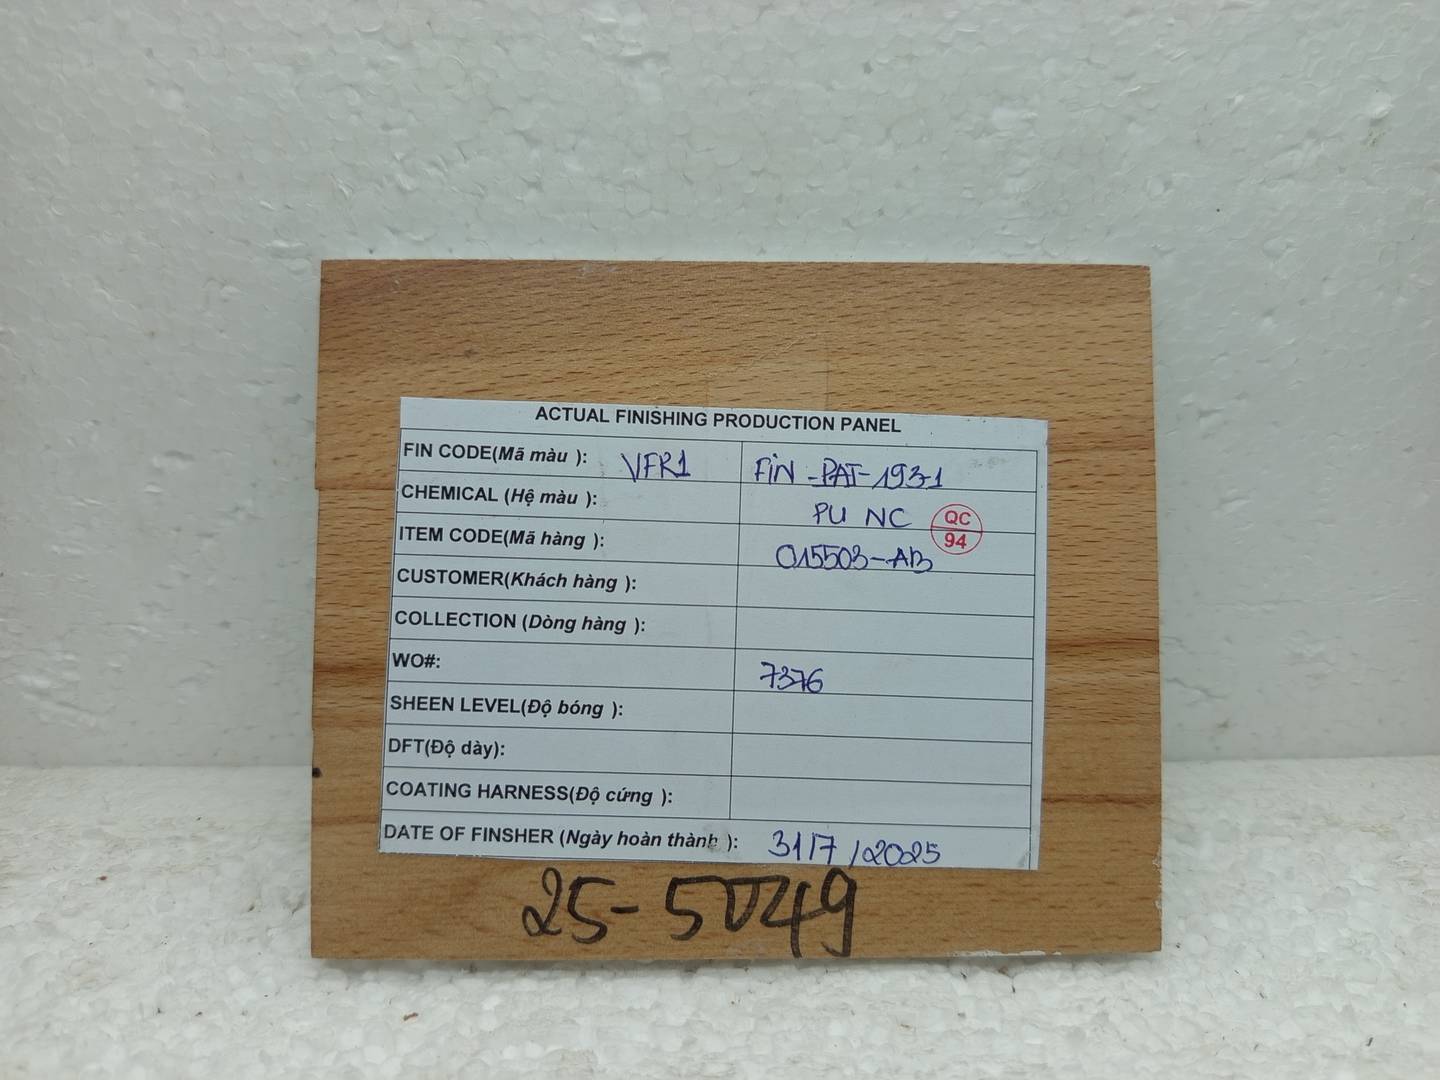 ACTUAL FINISHING PRODUCTION PANEL
FIN CODE(Mã màu ): VFR1 FiN-PAT-193-1
CHEMICAL (Hệ màu ): PU NC
QC
94
ITEM CODE(Mã hàng ): 015503-AB
CUSTOMER(Khách hàng ):
COLLECTION (Dòng hàng ):
WO#: 7376
SHEEN LEVEL(Độ bóng ):
DFT(Độ dày):
COATING HARNESS(Độ cứng ):
DATE OF FINSHER (Ngày hoàn thành ): 31/7/2025
25-5049